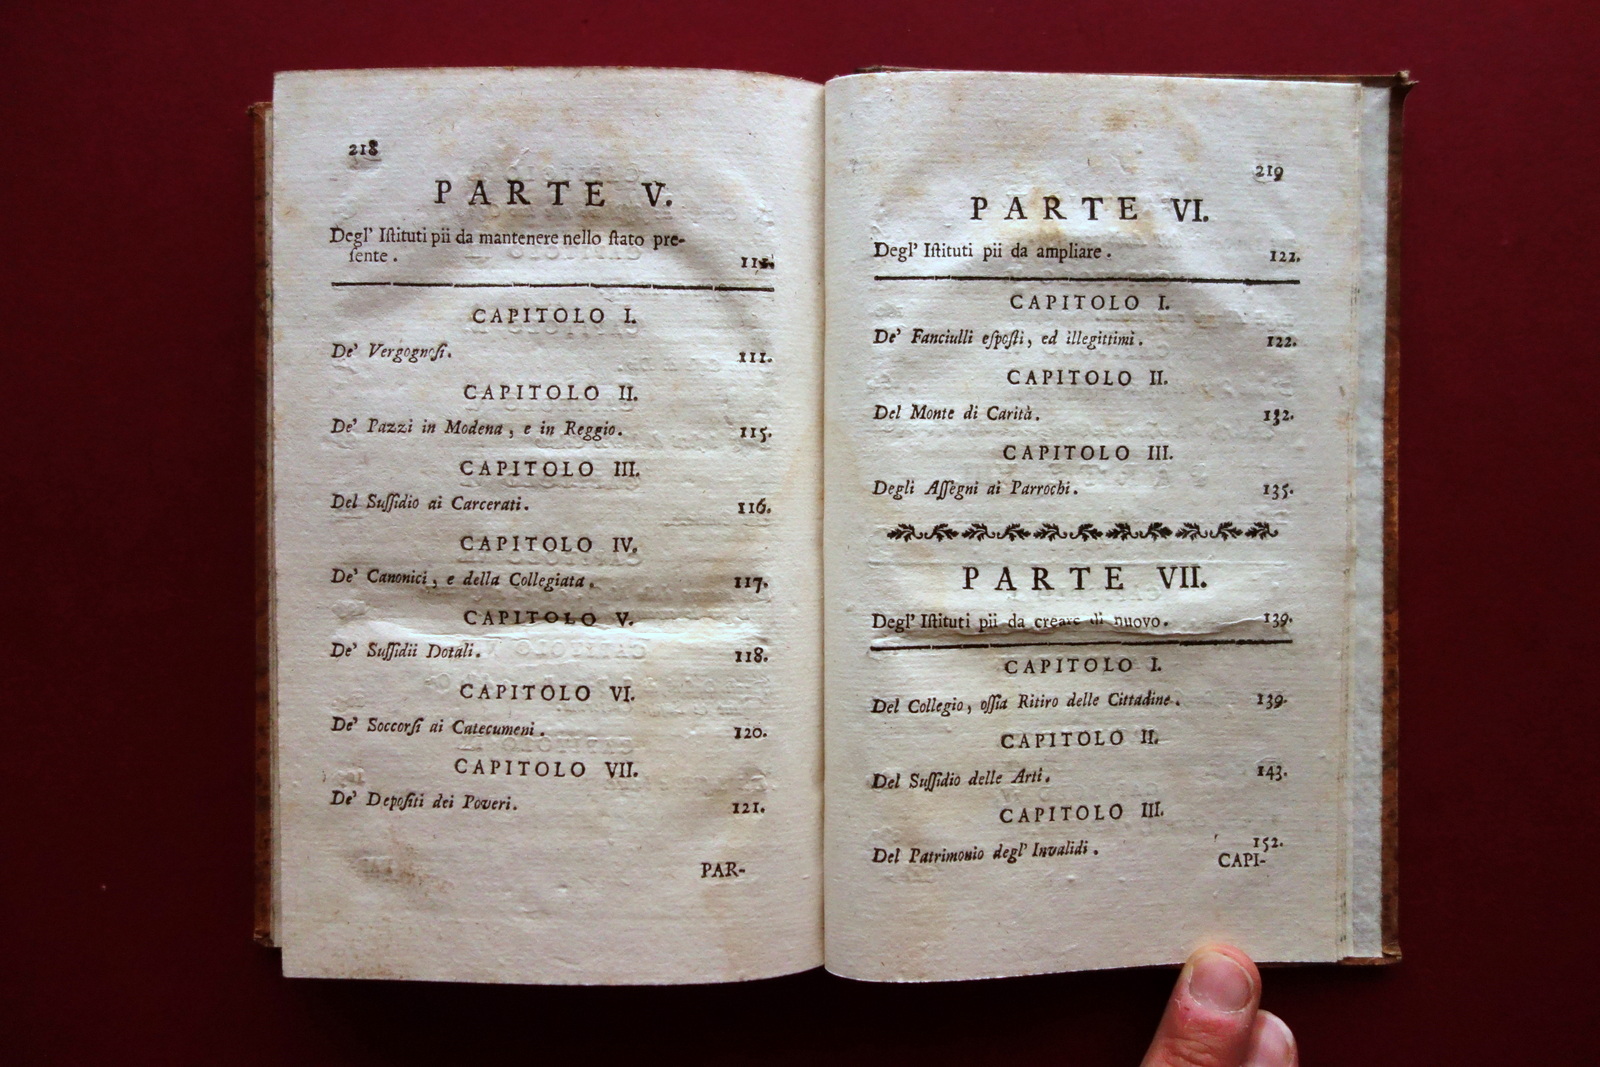 218
PARTE V.
Degl' Istituti pii da mantenere nello stato pre-
sente.
CAPITOLO I.
De' Vergognosi. 111.
CAPITOLO II.
De' Pazzi in Modena, e in Reggio. 115.
CAPITOLO III.
Del Sussidio ai Carcerati. 116.
CAPITOLO IV.
De' Canonici, e della Collegiata. 117.
CAPITOLO V.
De' Sussidii Dotali. 118.
CAPITOLO VI.
De' Soccorsi ai Catecumeni. 120.
CAPITOLO VII.
De' Depositi dei Poveri. 121.
PAR-
219
PARTE VI.
Degl' Istituti pii da ampliare. 122.
CAPITOLO I.
De' Fanciulli esposti, ed illegittimi. 122.
CAPITOLO II.
Del Monte di Carità. 132.
CAPITOLO III.
Degli Assegni ai Parrochi. 135.
PARTE VII.
Degl' Istituti pii da creare di nuovo. 139.
CAPITOLO I.
Del Collegio, ossia Ritiro delle Cittadine. 139.
CAPITOLO II.
Del Sussidio delle Arti. 143.
CAPITOLO III.
Del Patrimonio degl' Invalidi. 152.
CAPI-